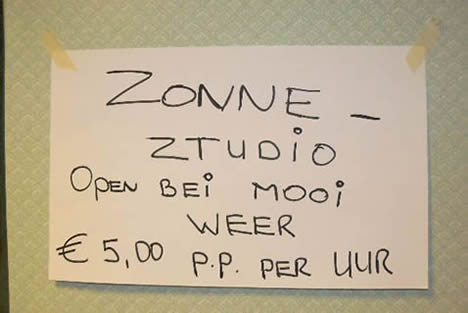 ZONNE -
ZTUDIO
OPEN BEI MOOI
WEER
€ 5,00 P.P. PER UUR